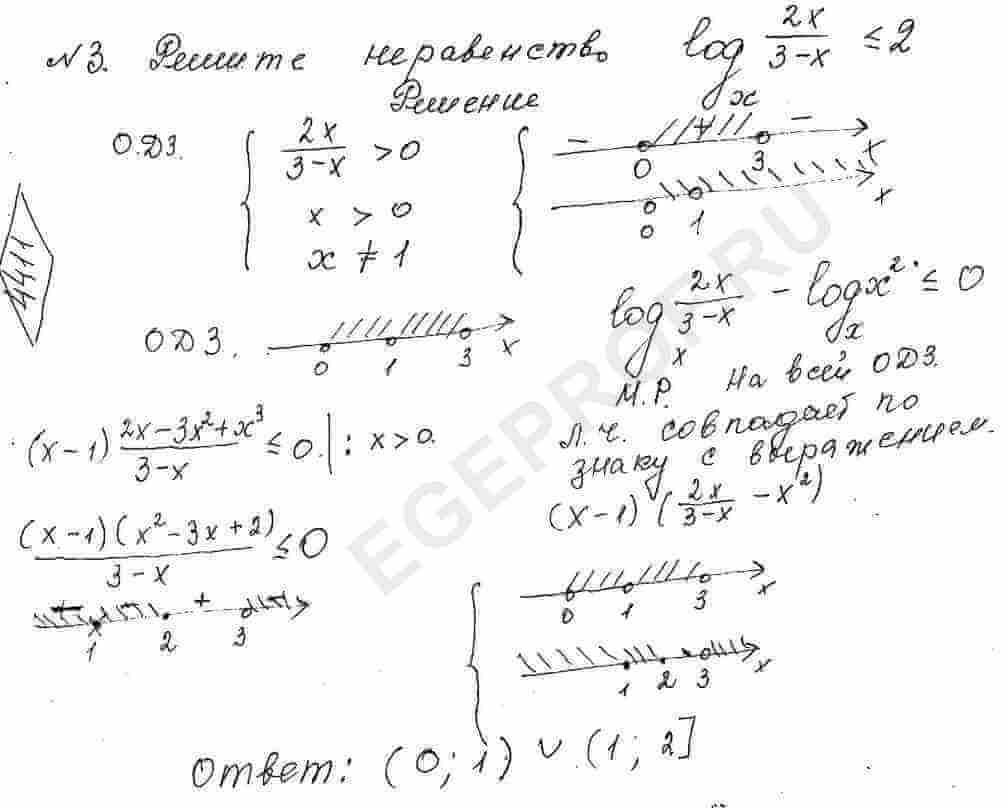 №3. Решите неравенство log_x 2x/(3-x) ≤ 2
Решение
О.Д.З. { 2x/(3-x) > 0
x > 0
x ≠ 1
{ - + -
0 3 x
0 1 x
4411
ОДЗ. 0 1 3 x
log_x 2x/(3-x) - log_x x² ≤ 0
М.Р. На всей ОДЗ.
л.ч. совпадает по
знаку с выражением.
(x-1)(2x/(3-x) - x²)
(x-1) (2x-3x²+x³)/(3-x) ≤ 0. | : x>0.
(x-1)(x²-3x+2)/(3-x) ≤ 0
1 2 + 3
{ 0 1 3 x
1 2 3 x
Ответ: (0; 1) ∪ (1; 2]
EGEPROF.RU